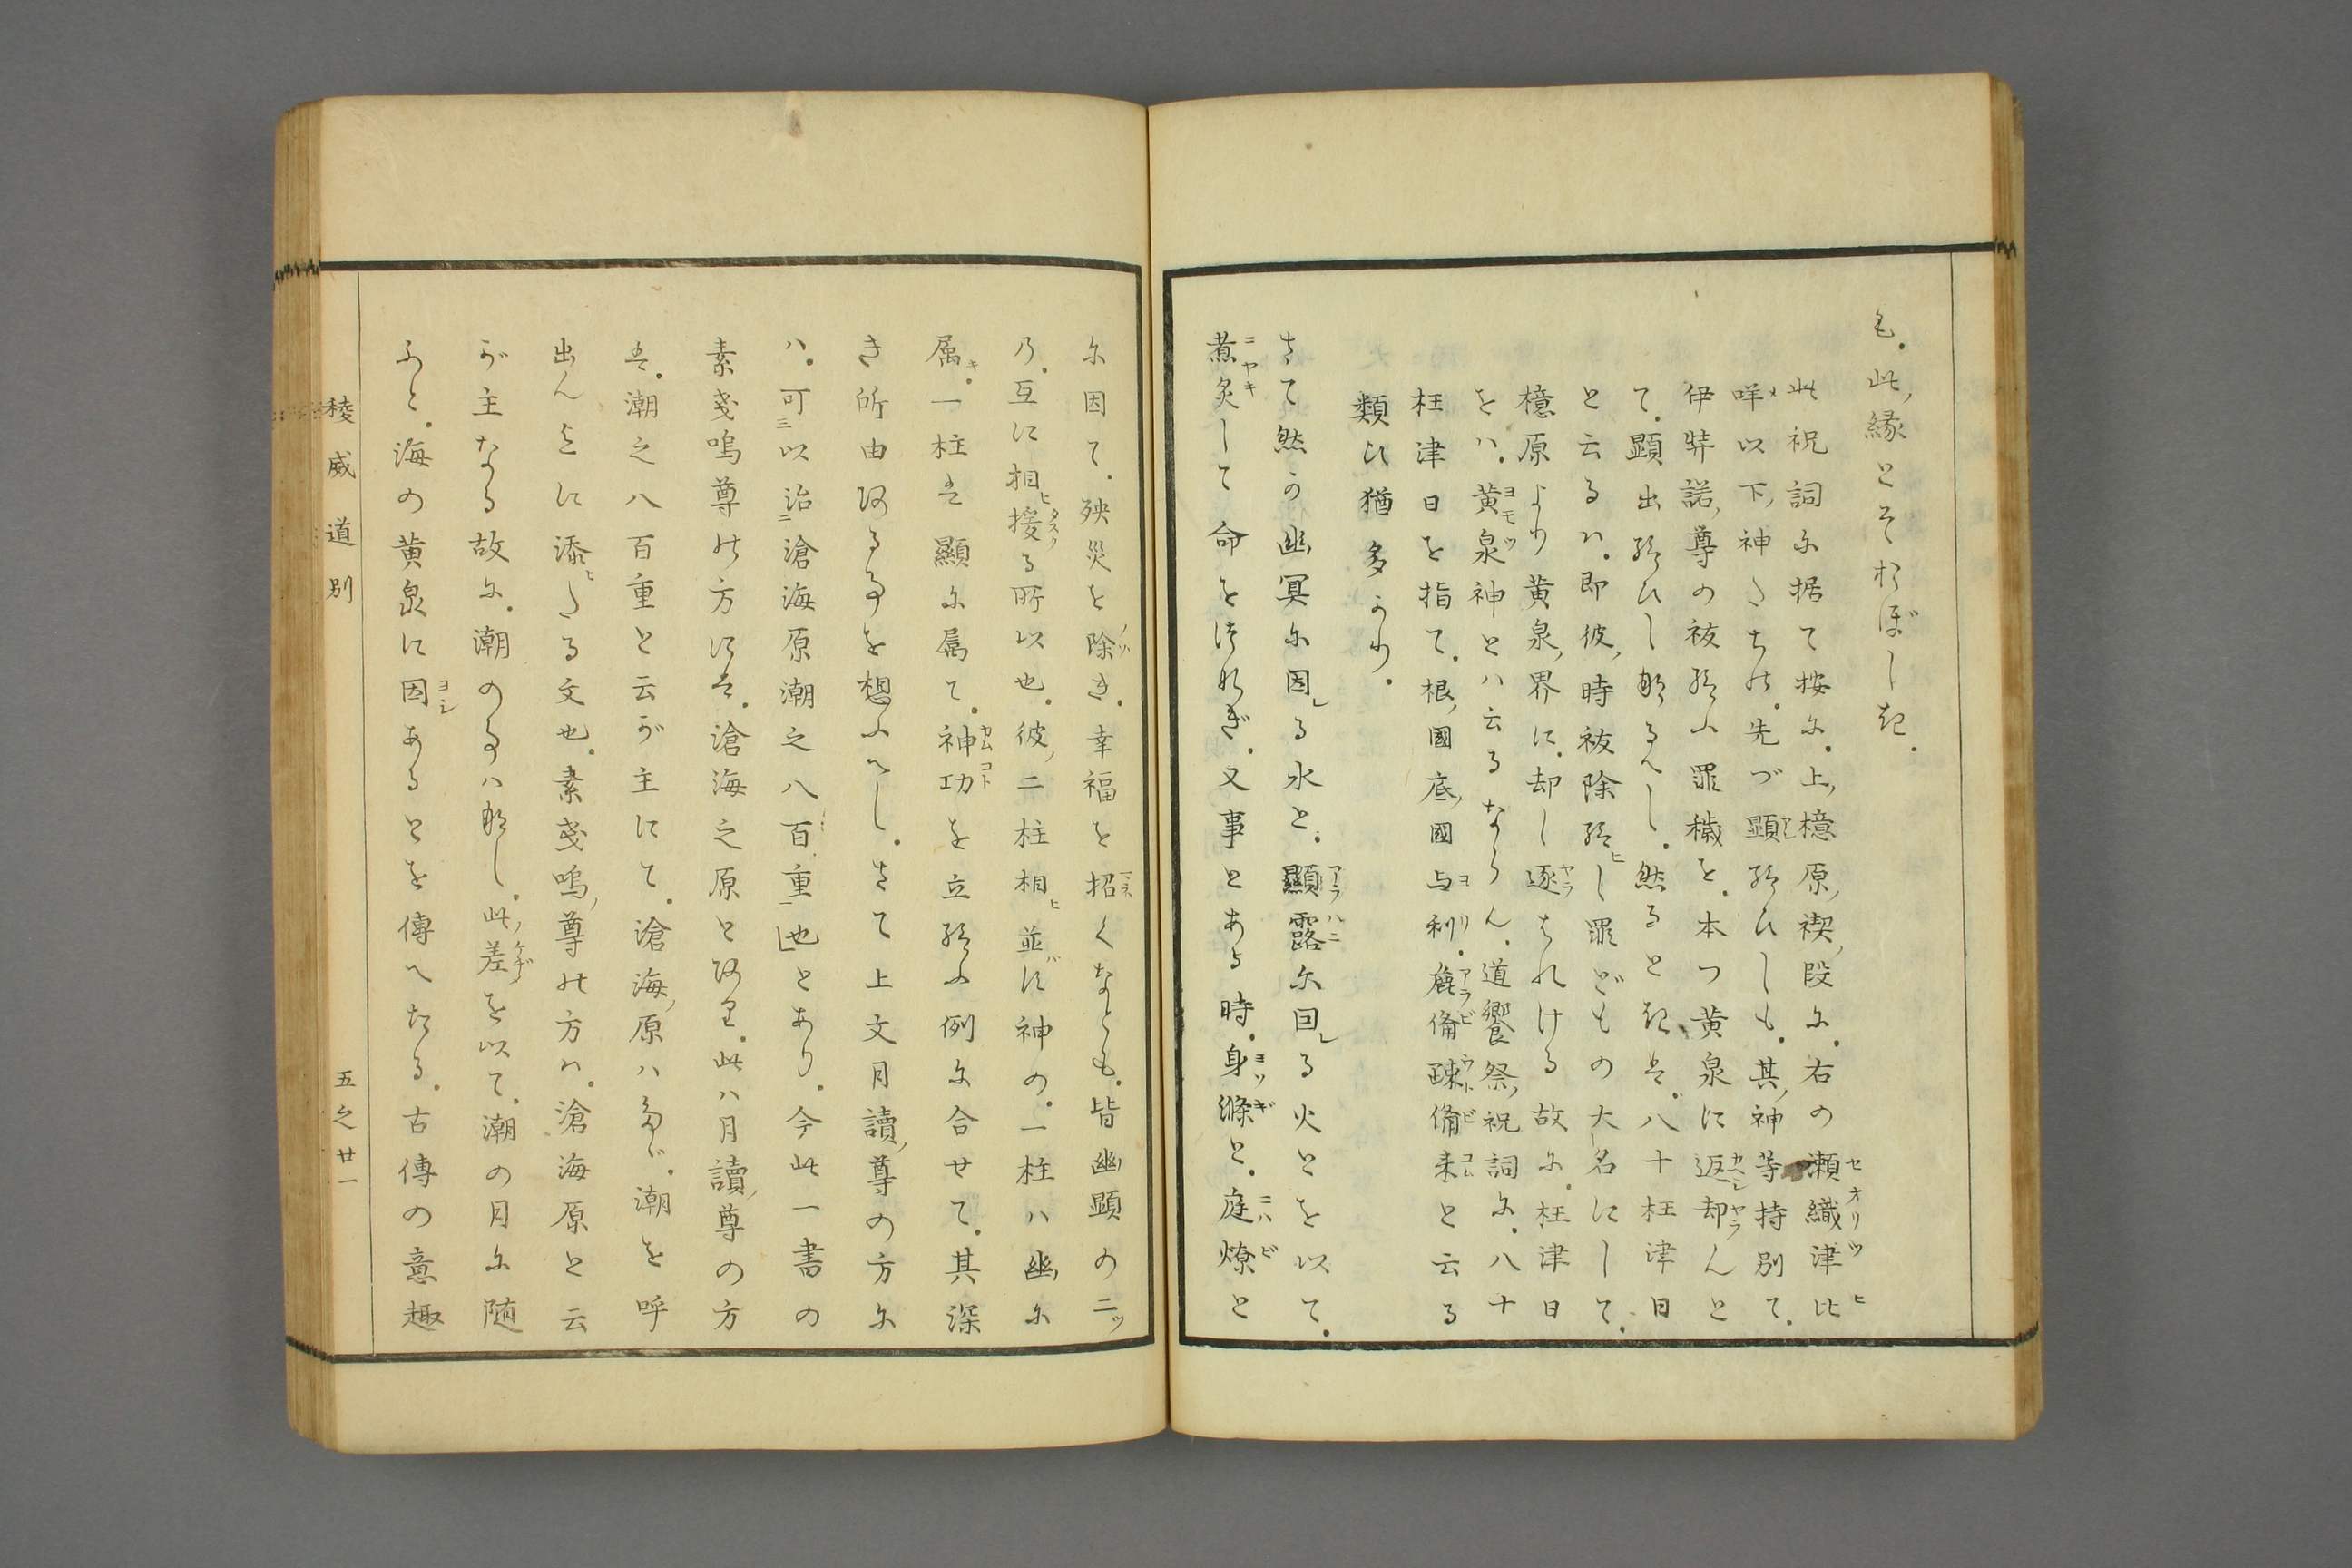 も。此縁とぞおぼしき。
此祝詞に据て按に。上檍原禊段に。右の瀬織津比
咩以下神たちの。先づ顯給ひしも。其神等持別て。
伊弉諾尊の祓給ふ罪穢を。本つ黄泉に返却んと
て。顯出給ひしなるべし。然るときは。八十枉津日
と云るハ。即彼時祓除給ヒし罪どもの大名にして。
檍原より黄泉界に。却し逐はれける故に。枉津日
をハ。黄泉神とハ云るならん。道饗祭祝詞に。八十
枉津日を指て。根國底國与利。麁備疎備来と云る
類ひ猶多かり。
さて然か幽冥に因る水と。顯露に因る火とを以て。
煮炙して命をつなぎ。又事とある時。身滌と。庭燎と
に因て。殃災を除き。幸福を招くなども。皆幽顯の二ッ
乃。互に相援る所以也。彼二柱相並ばす神の。一柱ハ幽に
属キ。一柱は顯に属て。神功を立給ふ例に合せて。其深
き所由ある事を想ふべし。さて上文月讀尊の方に
ハ。可三以治二滄海原潮之八百重一也とあり。今此一書の
素戔嗚尊の方には。滄海之原とあり。此ハ月讀尊の方
は。潮之八百重と云が主にて。滄海原ハたゞ。潮を呼
出んとに添ヒたる文也。素戔嗚尊の方ハ。滄海原と云
が主なる故に。潮の事ハなし。此差を以て。潮の月に随
ふと。海の黄泉に因あるとを傳へたる。古傳の意趣
稜威道別
五之廿一